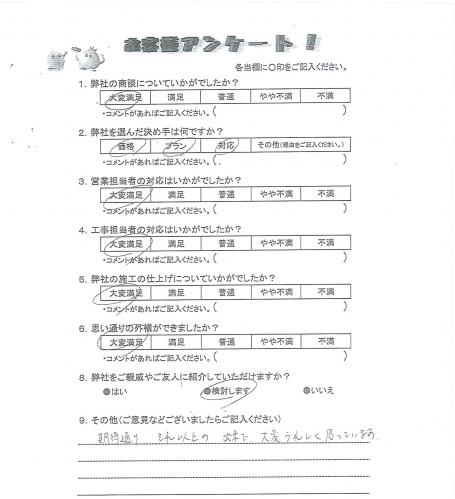 お客様アンケート！
各当欄に〇印をご記入ください。
1. 弊社の商談についていかがでしたか？
大変満足 満足 普通 やや不満 不満
・コメントがあればご記入ください。( )
2. 弊社を選んだ決め手は何ですか？
価格 プラン 対応 その他(理由をご記入ください。)
・コメントがあればご記入ください。( )
3. 営業担当者の対応はいかがでしたか？
大変満足 満足 普通 やや不満 不満
・コメントがあればご記入ください。( )
4. 工事担当者の対応はいかがでしたか？
大変満足 満足 普通 やや不満 不満
・コメントがあればご記入ください。( )
5. 弊社の施工の仕上げについていかがでしたか？
大変満足 満足 普通 やや不満 不満
・コメントがあればご記入ください。( )
6. 思い通りの外構ができましたか？
大変満足 満足 普通 やや不満 不満
・コメントがあればご記入ください。( )
8. 弊社をご親戚やご友人に紹介していただけますか？
●はい ●検討します ●いいえ
9. その他(ご意見などございましたらご記入ください)
期待通り それ以上の 出来で 大変うれしく思っています。